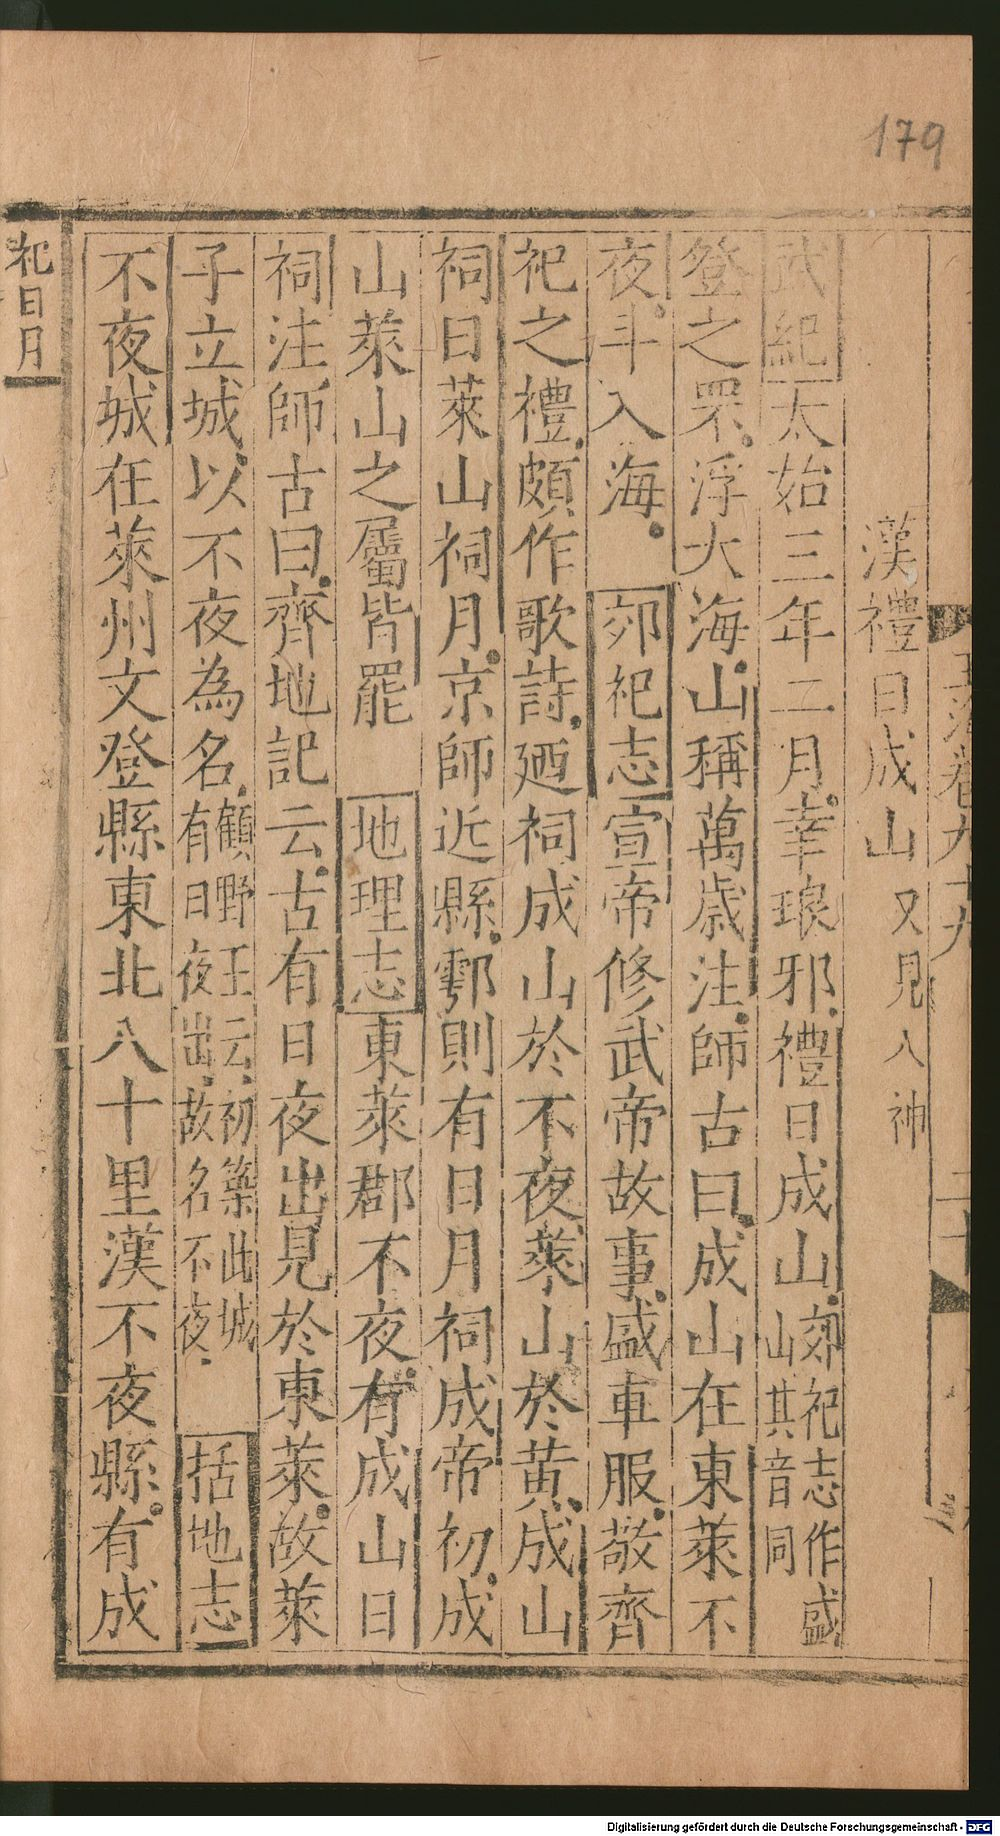 179
玉海卷九十九 二十
漢禮日成山 又見八神
武紀太始三年二月幸琅邪禮日成山郊祀志作盛山其音同
登之罘浮大海山稱萬歲注師古曰成山在東萊不
夜斗入海 郊祀志宣帝修武帝故事盛車服敬齊
祀之禮頗作歌詩廼祠成山於不夜萊山於黃成山
祠日萊山祠月京師近縣鄠則有日月祠成帝初成
山萊山之屬皆罷 地理志東萊郡不夜有成山日
祠注師古曰齊地記云古有日夜出見於東萊故萊
子立城以不夜為名顧野王云初築此城有日夜出故名不夜 括地志
不夜城在萊州文登縣東北八十里漢不夜縣有成
祀日月
Digitalisierung gefördert durch die Deutsche Forschungsgemeinschaft - DFG